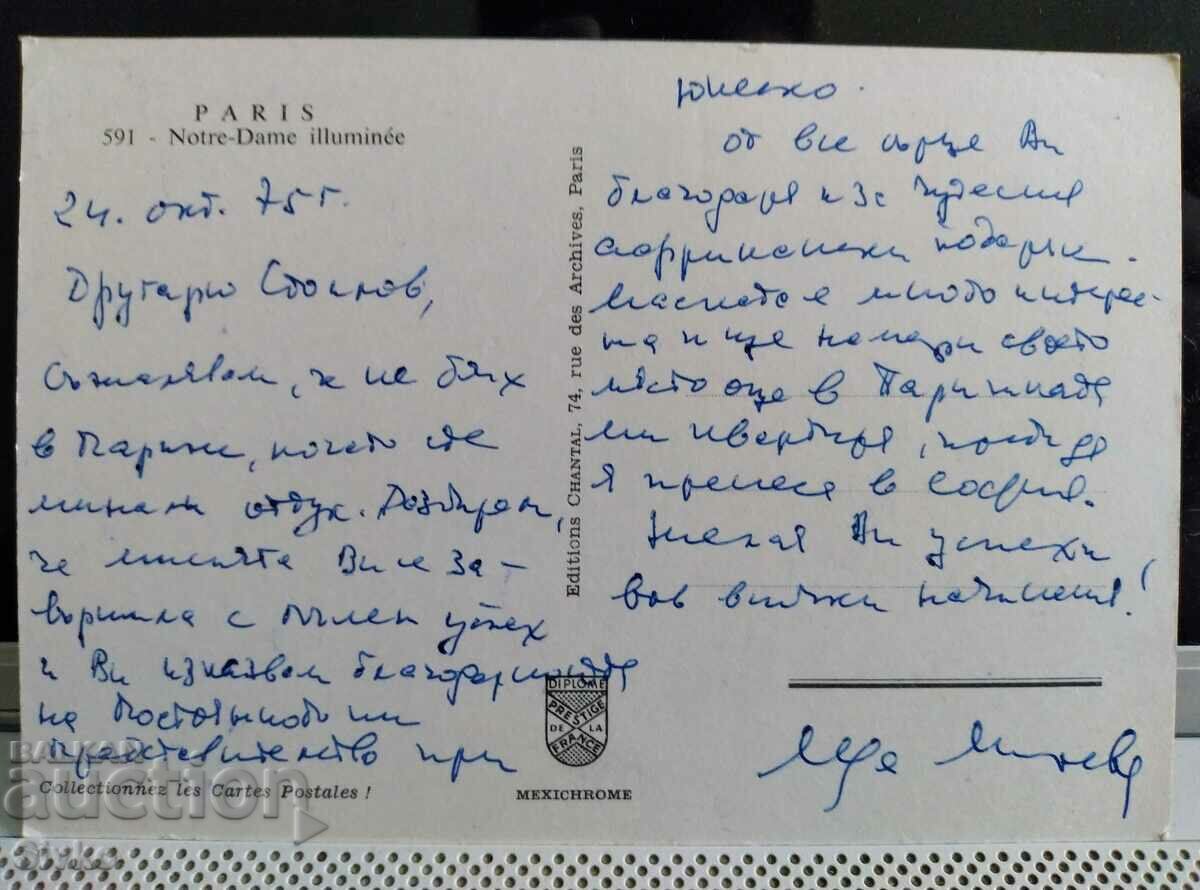 PARIS
591 - Notre-Dame illuminée
24. окт. 75 г.
Другарю Стоилов,
Съжалявам, че не бях
в Париж, когато сте
минали оттук. Разбирам,
че мисията Ви е за-
вършила с пълен успех
и Ви изказвам благодарността
на Постоянното ни
представителство при
Collectionnez les Cartes Postales !
Editions CHANTAL, 74, rue des Archives, Paris
DIPLOME
PRESTIGE
DE LA
FRANCE
MEXICHROME
Юнеско.
от все сърце Ви
благодаря и за чудесния
африкански подарък.
Маската е много интерес-
на и ще намери своето
място още в Парижката
ми квартира, преди да
я пренеса в София.
Желая Ви успехи
във всички начинания!
Милева
BALKAN
auction
Sivko